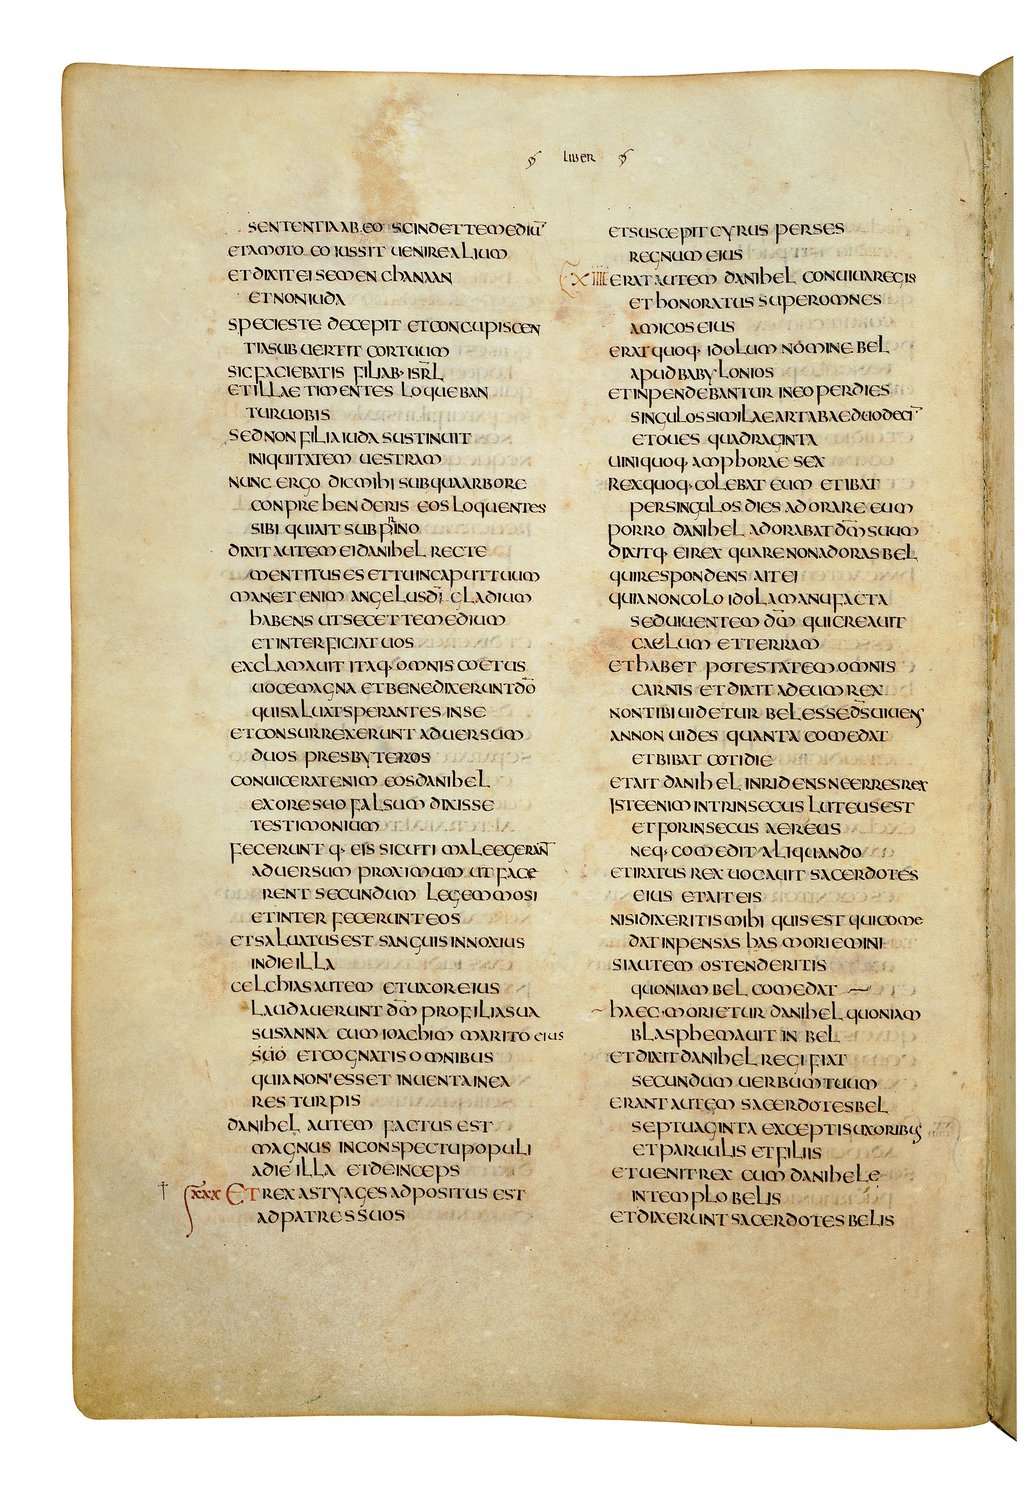 LIBER
SENTENTIAABEO SCINDETTEMEDIŪ
ETAMOTO EO IUSSIT UENIREALIUM
ETDIXITEISEMEN CHANAAN
ETNONIUDA
SPECIESTE DECEPIT ETCONCUPISCEN
TIASUBUERTIT CORTUUM
SICFACIEBATIS FILIAB· ISRL̄
ETILLAE TIMENTES LOQUEBAN
TURUOBIS
SEDNON FILIAIUDA SUSTINUIT
INIQUITATEM UESTRAM
NUNC ERGO DICMIHI SUBQUAARBORE
CONPREHENDERIS EOS LOQUENTES
SIBI QUIAIT SUB PRINO
DIXIT AUTEM EIDANIHEL RECTE
MENTITUS ES ETTUINCAPUTTUUM
MANET ENIM ANGELUSDN̄I GLADIUM
HABENS UTSECETTEMEDIUM
ETINTERFICIAT UOS
EXCLAMAUIT ITAQ· OMNIS COETUS
UOCEMAGNA ETBENEDIXERUNTDŌ
QUISALUATSPERANTES INSE
ETCONSURREXERUNT ADUERSUM
DUOS PRESBYTEROS
CONUICERATENIM EOSDANIHEL
EXORESUO FALSUM DIXISSE
TESTIMONIUM
FECERUNT Q· EIS SICUTI MALEEGERAN̄T
ADUERSUM PROXIMUM UT FACE
RENT SECUNDUM LEGEMMOSI
ETINTERFECERUNTEOS
ETSALUATUSEST SANGUIS INNOXIUS
INDIEILLA
CELCHIASAUTEM ETUXOREIUS
LAUDAUERUNT DM̄ PROFILIASUA
SUSANNA CUMIOACHIM MARITO EIUS
SUO ETCOGNATIS OMNIBUS
QUIANON ESSET INUENTAINEA
RES TURPIS
DANIHEL AUTEM FACTUS EST
MAGNUS INCONSPECTUPOPULI
ADIE ILLA ETDEINCEPS
XXX ET REX ASTYAGES ADPOSITUS EST
ADPATRES SUOS
ETSUSCEPIT CYRUS PERSES
REGNUM EIUS
XIIII ERATAUTEM DANIHEL CONUIUAREGIS
ETHONORATUS SUPEROMNES
AMICOS EIUS
ERATQUOQ· IDOLUM NOMINE BEL
APUDBABYLONIOS
ETINPENDEBANTUR INEO PERDIES
SINGULOSSIMILAEARTABAEDUODECĪ
ETOUES QUADRAGINTA
UINIQUOQ· AMPHORAE SEX
REXQUOQ· COLEBAT EUM ETIBAT
PERSINGULOS DIES ADORARE EUM
PORRO DANIHEL ADORABAT DM̄ SUUM
DIXITQ· EI REX QUARENONADORAS BEL
QUIRESPONDENS AITEI
QUIANONCOLO IDOLAMANUFACTA
SEDUIUENTEM DM̄ QUICREAUIT
CAELUM ETTERRAM
ETHABET POTESTATEM OMNIS
CARNIS ETDIXIT ADEUM REX
NONTIBIUIDETUR BELESSEDS̄UIUENS
ANNON UIDES QUANTA COMEDAT
ETBIBAT COTIDIE
ETAIT DANIHEL INRIDENSNEERRESREX
ISTEENIM INTRINSECUS LUTEUSEST
ETFORINSECUS AEREUS
NEQ· COMEDIT ALIQUANDO
ETIRATUS REX UOCAUIT SACERDOTES
EIUS ETAITEIS
NISIDIXERITISMIHI QUISEST QUICOME
DATINPENSAS HAS MORIEMINI
SIAUTEM OSTENDERITIS
QUONIAM BEL COMEDAT
HAEC· MORIETUR DANIHEL QUONIAM
BLASPHEMAUIT IN BEL
ETDIXITDANIHEL REGI FIAT
SECUNDUM UERBUMTUUM
ERANTAUTEM SACERDOTESBEL
SEPTUAGINTA EXCEPTISUXORIBUS
ETPARUULIS ETFILIIS
ETUENITREX CUM DANIHELE
INTEMPLO BELIS
ETDIXERUNTSACERDOTES BELIS